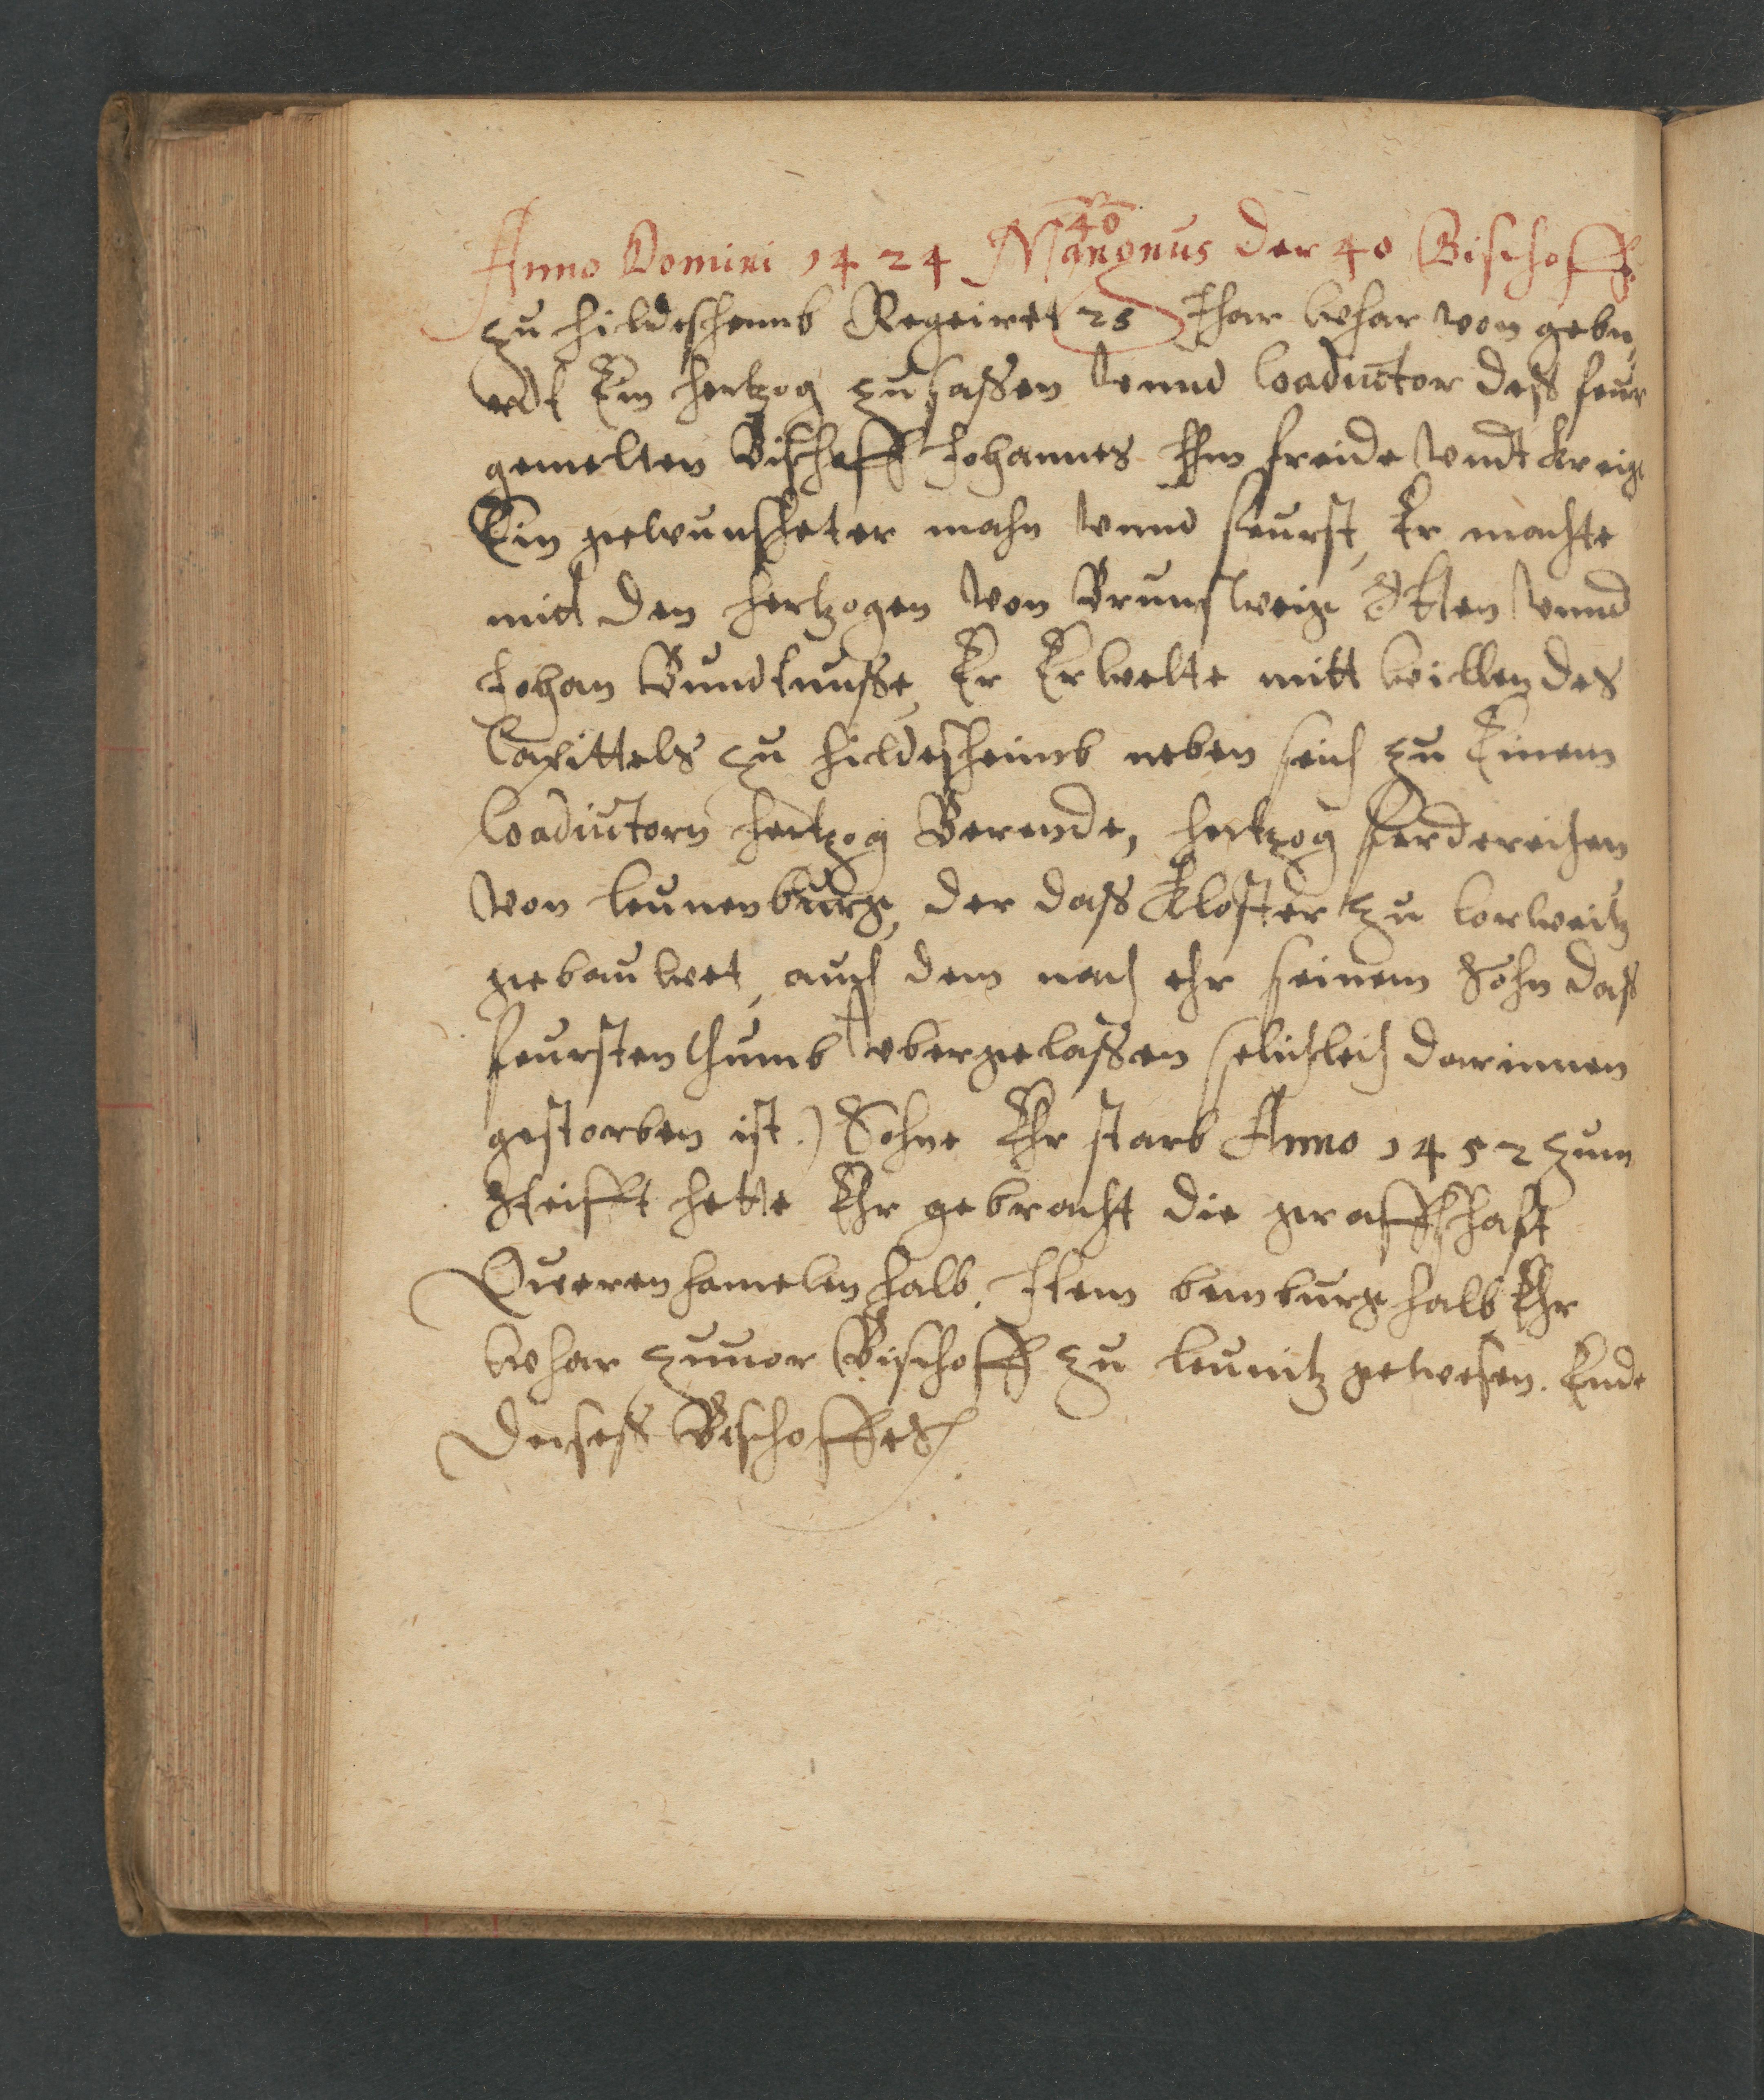 40
Anno Domini 1424 Mangnus der 40 Bischoff
zu hildeshemb Regeiret 28 Jhar whar von gebu,
rdt Ein hertzog zu saßen vnnd Coadiuctor deß feur
gemelten Bischoff Johannes Jhm freide vndt kreige
Ein gewunscheter mahn vnnd feurst, Er machte
mitt den hertzogen von Brunsweig Otten vnnd
Johan Bundtnuße, Er Erwelte mitt willen des
Capittels zu hildesheimb neben seich zu Einem
Coadiutorn hertzog Berende, hertzog ferdereichen
von leunenburg, der daß Kloster zu
gebauwet, auch dem nach ehr seinem Sohn daß
feurstenthumb vbergelaßen selichleich darinnen
gestorben ist.) Sohne Ehr starb Anno 1452 zum
Steifft hette Ehr gebracht die graffschafft
Querenhamelen halb. Item bemburg halb Ehr
whar zuuor Bischoff zu gewesen. Ende
Deises Bischoffes.